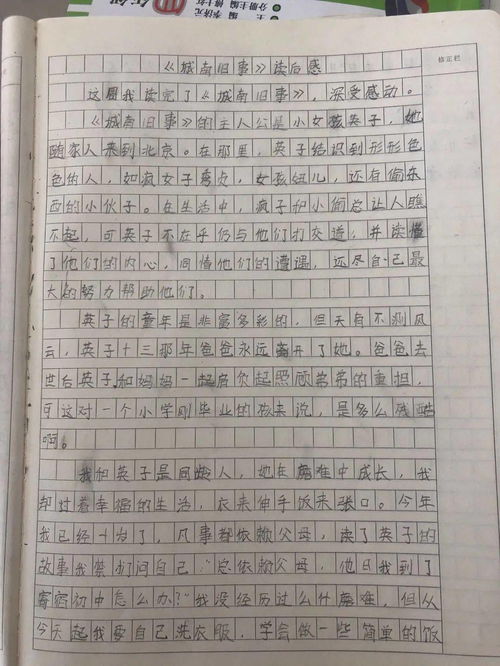 主编 李济元
分册主编 傅士红
四年级
修正栏
《城南旧事》读后感
这周我读完了《城南旧事》，深受感动。
《城南旧事》的主人公是小女孩英子，她
随家人来到北京。在那里，英子结识到形形色
色的人，如疯女子秀贞，女孩妞儿，还有偷东
西的小伙子。在生活中，疯子和小偷总让人瞧
不起，可英子不在乎仍与他们打交道，并读懂
了他们的内心，同情他们的遭遇，还尽自己最
大的努力帮助他们。
英子的童年是非富多彩的，但天有不测风
云，英子十三那年爸爸永远离开了她。爸爸去
世后英子和妈妈一起肩负起照顾弟弟的重担，
可这对一个小学刚毕业的孩来说，是多么残酷
啊。
我和英子是同龄人，她在磨难中成长，我
却过着幸福的生活，衣来伸手饭来张口。今年
我已经十岁了，凡事都依赖父母，读了英子的
故事我禁们问自己：“总依赖父母，他日我到了
寄宿初中怎么办？”我没经历过么什磨难，但从
今天起我要自己洗衣服，学会做一些简单的饭